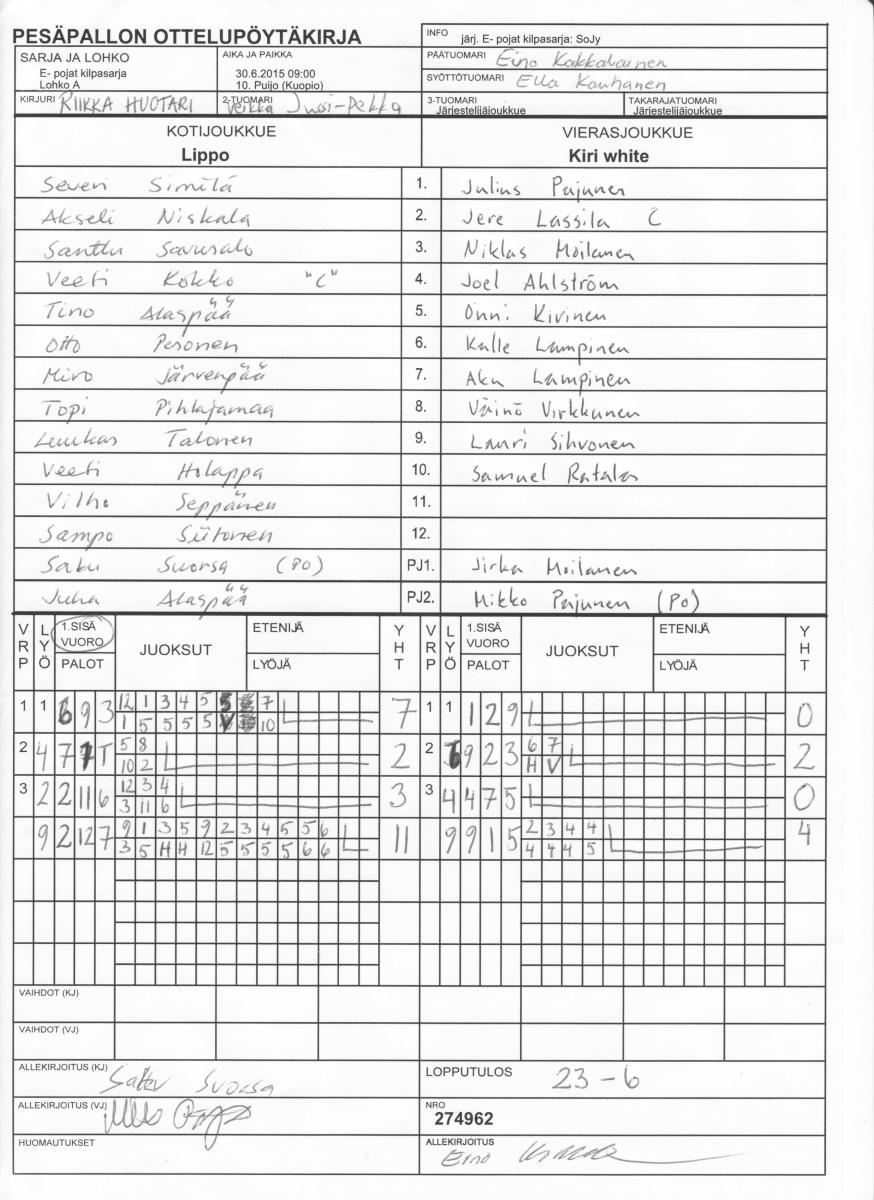 PESÄPALLON OTTELUPÖYTÄKIRJA
INFO järj. E- pojat kilpasarja: SoJy
SARJA JA LOHKO
E- pojat kilpasarja
Lohko A
AIKA JA PAIKKA
30.6.2015 09:00
10. Puijo (Kuopio)
PÄÄTUOMARI Eino Kakkalainen
SYÖTTÖTUOMARI Ella Kauhanen
KIRJURI RIIKKA HUOTARI
2-TUOMARI Veikka Jussi-Pekka
3-TUOMARI
Järjestelijäjoukkue
TAKARAJATUOMARI
Järjestelijäjoukkue
KOTIJOUKKUE
Lippo
VIERASJOUKKUE
Kiri white
Severi Similä 1. Julius Pajunen
Akseli Niskala 2. Jere Lassila C
Santtu Savusalo 3. Niklas Moilanen
Veeti Kokko "C" 4. Joel Ahlström
Tino Alaspää 5. Onni Kivinen
Otto Pesonen 6. Kalle Lampinen
Miro Järvenpää 7. Aku Lampinen
Topi Pihlajamaa 8. Väinö Virkkunen
Luukas Talonen 9. Lauri Sihvonen
Veeti Holappa 10. Samuel Ratalas
Vilho Seppänen 11.
Sampo Siitonen 12.
Saku Suorsa (PO) PJ1. Jirka Moilanen
Juha Alaspää PJ2. Mikko Pajunen (PO)
VRP LYÖ 1.SISÄ VUORO PALOT JUOKSUT ETENIJÄ LYÖJÄ YHT VRP LYÖ 1.SISÄ VUORO PALOT JUOKSUT ETENIJÄ LYÖJÄ YHT
12 1 3 4 5 5 7
1 1 6 9 3 7 1 1 1 2 9 0
1 5 5 5 5 V 10
5 8 6 7
2 4 7 7 T 2 2 9 2 3 2
10 2 H V
12 3 4
3 2 2 11 6 3 3 4 4 7 5 0
3 11 6
9 1 3 5 9 2 3 4 5 5 6 2 3 4 4
9 2 12 7 11 9 9 1 5 4
3 5 H H 12 5 5 5 5 6 6 4 4 4 5
VAIHDOT (KJ)
VAIHDOT (VJ)
ALLEKIRJOITUS (KJ) Saku Suorsa
LOPPUTULOS 23-6
ALLEKIRJOITUS (VJ)
NRO
274962
HUOMAUTUKSET
ALLEKIRJOITUS
Eino